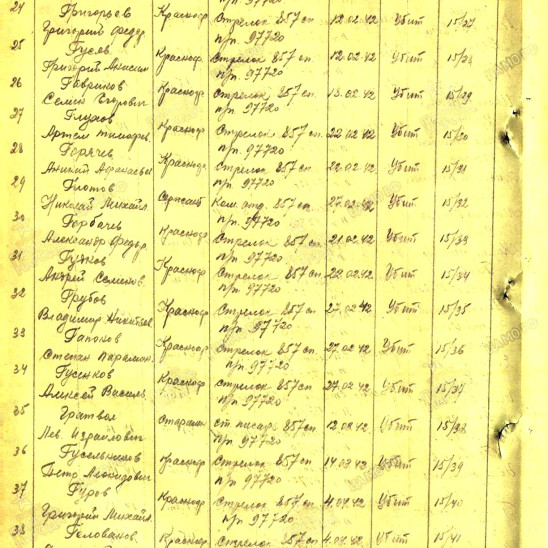 24 Григорьев Красноар. Стрелок 857 сп 12.02.42 Убит 15/27
Григорий Федор. п/п. 97720
25 Гусев Красноар. Стрелок 857 сп 12.02.42 Убит 15/28
Григорий Анисим. п/п. 97720
26 Гавриков Красноар. Стрелок 857 сп 13.02.42 Убит 15/29
Семен Егорович п/п. 97720
27 Глухов Красноар. Стрелок 857 сп 22.02.42 Убит
Артем Тимофев. п/п. 97720
28 Горячев Красноар. Стрелок 857 сп 22.02.42 Убит 15/31
Афанасьев п/п. 97720
29 Глотов Сержант Ком. отд. 857 сп 27.02.42 Убит 15/32
Николай Михайл. п/п. 97720
30 Горбачев Красноар. Стрелок 857 сп 21.02.42 Убит 15/33
Александр Федор. п/п. 97720
31 Гудков Красноар. Стрелок 857 сп 22.02.42 Убит 15/34
Андрей Семенов. п/п. 97720
32 Грубов Красноар. Стрелок 857 сп 27.02.42 Убит 15/35
Владимир Никитьев. п/п. 97720
33 Гапонов Красноар. Стрелок 857 сп 27.02.42 Убит 15/36
Степан п/п. 97720
34 Гусенков Красноар. Стрелок 857 сп 27.02.42 Убит 15/37
Алексей Василь. п/п. 97720
35 Старшин. ст. писарь 857 сп 12.02.42 Убит 15/38
Лев Израилович п/п. 97720
36 Гусельников Красноар. Стрелок 857 сп 14.02.42 Убит 15/39
Петр Леонидович п/п. 97720
37 Гуров Красноар. Стрелок 857 сп 4.02.42 Убит 15/40
Григорий Михайл. п/п. 97720
38 Голованов Красноар. Стрелок 857 сп 4.02.42 Убит 15/41